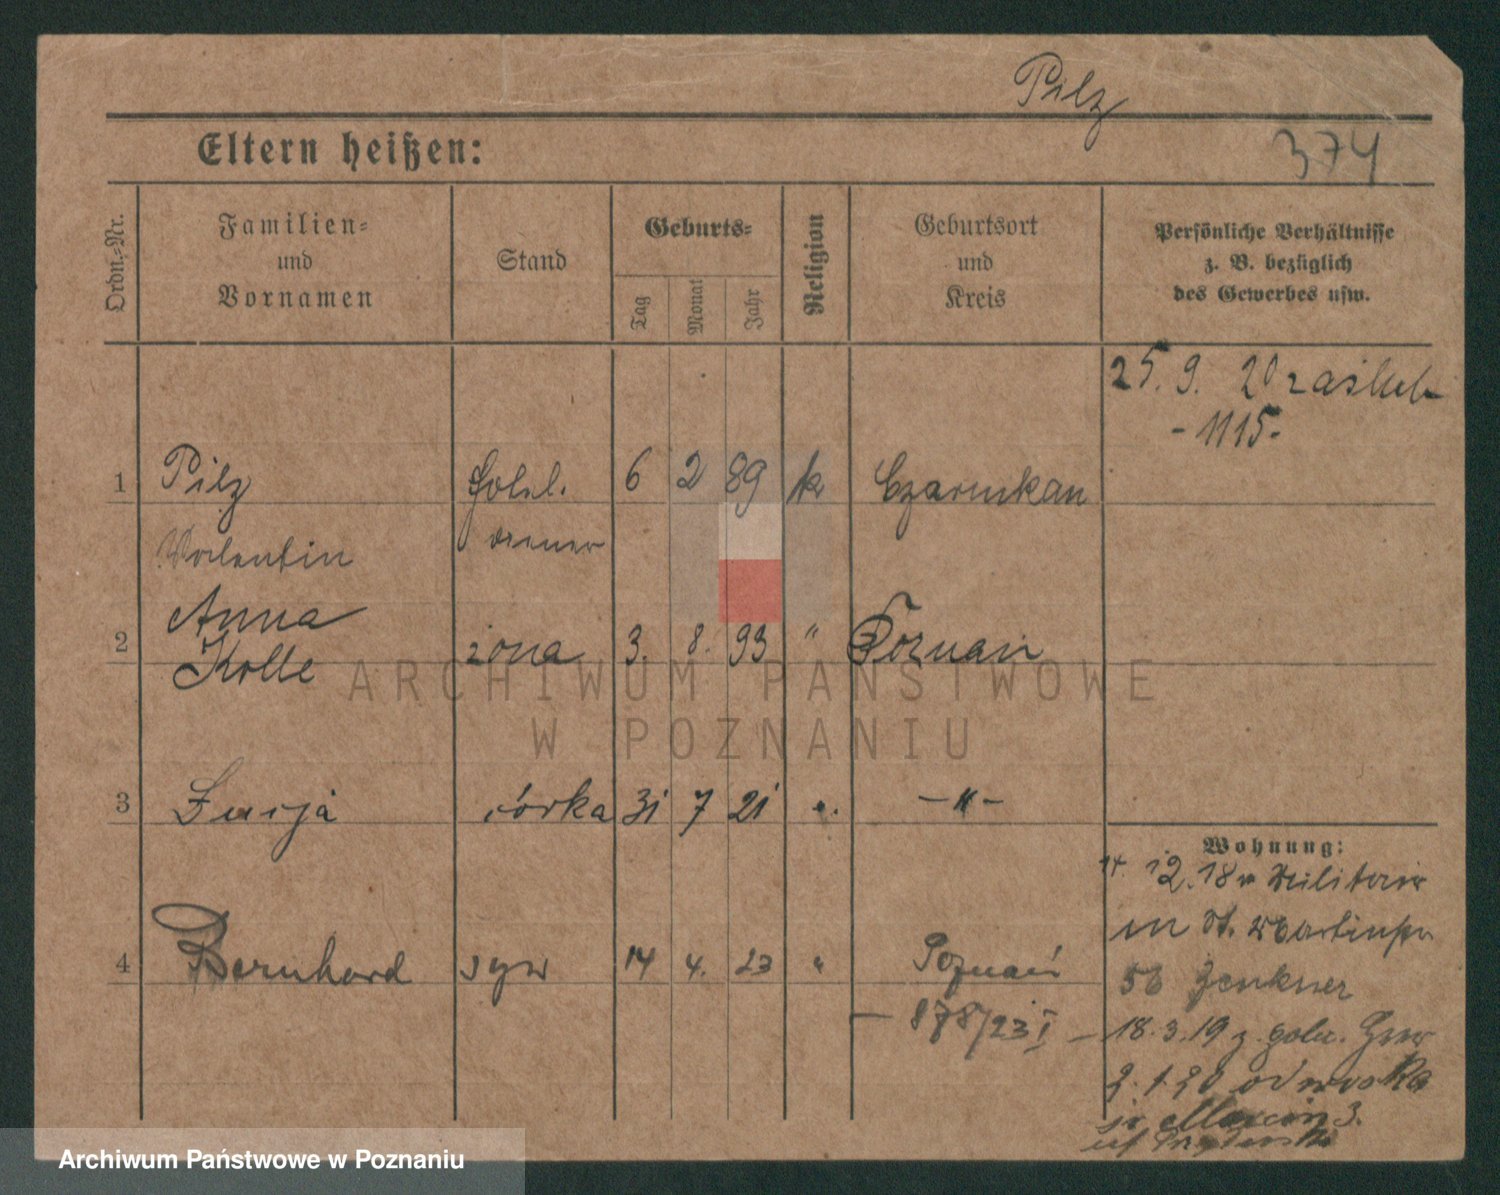 Pilz
374
Eltern heißen:
Ordn.-Nr.
Familien-
und
Vornamen
Stand
Geburts-
Tag
Monat
Jahr
Religion
Geburtsort
und
Kreis
Persönliche Verhältnisse
z. B. bezüglich
des Gewerbes usw.
25. 9. 20 zaślub
- 1115 -
1 Pilz 6 2 89 k Czarnikau
Valentin
Anna
2 Kolle żona 3. 8. 93 " Poznań
3 Łucja córka 31 7 21 " - " -
4 Bernhard syn 14 4. 23 " Poznań
- 878/23 I -
Wohnung:
14. 12. 18 v Militär
in St. Martinstr
56 Zenkner
18. 3. 19 z.
2. 1. 20 od wojska
św Marcin 3.
ARCHIWUM PAŃSTWOWE
W POZNANIU
Archiwum Państwowe w Poznaniu